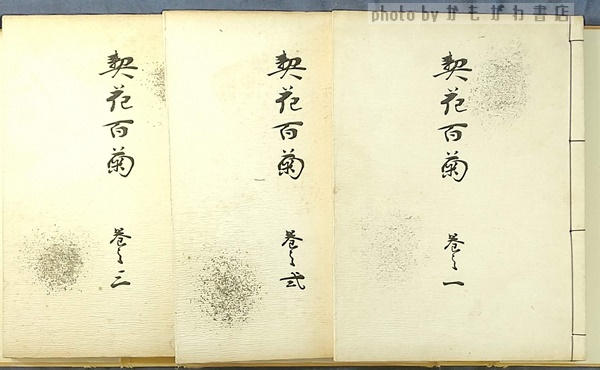 photo by かもがわ書店
契花百菊 巻之一
契花百菊 巻之弐
契花百菊 巻之三